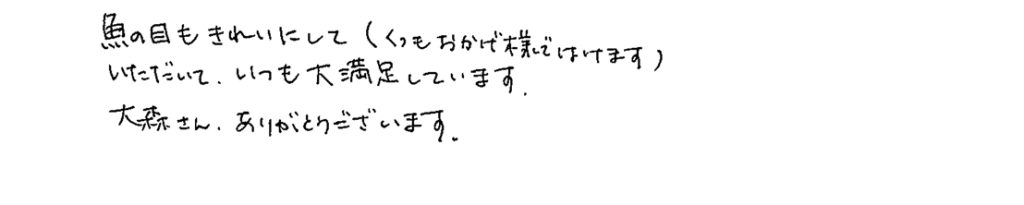 魚の目もきれいにして(くつもおかげ様ではけます)
いただいて、いつも大満足しています。
大森さん、ありがとうございます。